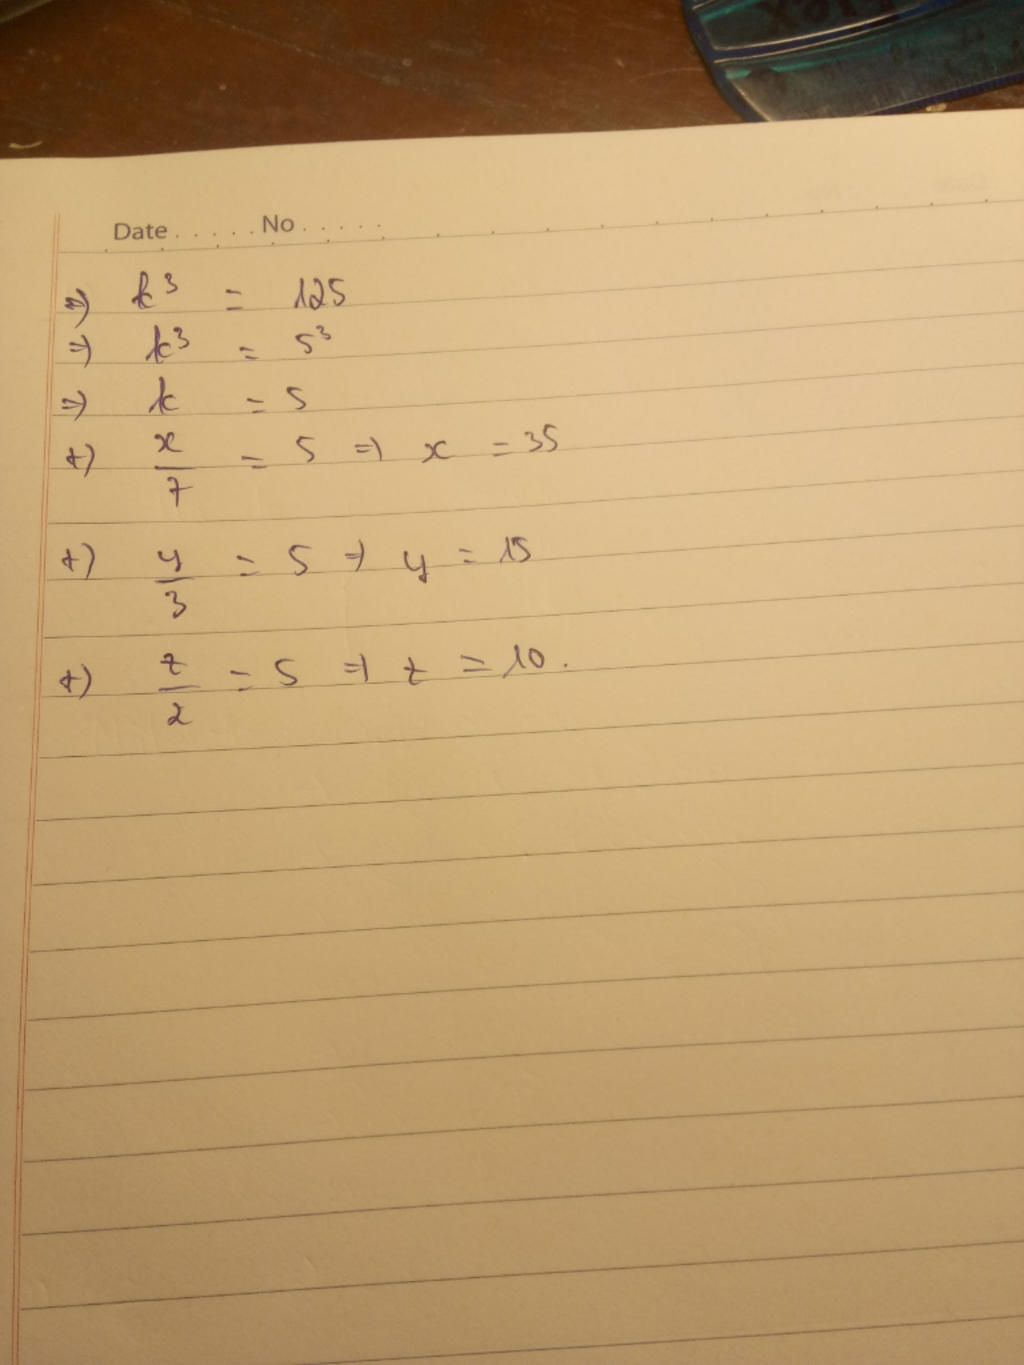 Date ..... No .....
=) k³ = 125
=) k³ = 5³
=) k = 5
+) x/7 = 5 =) x = 35
+) y/3 = 5 =) y = 15
+) z/2 = 5 =) z = 10.